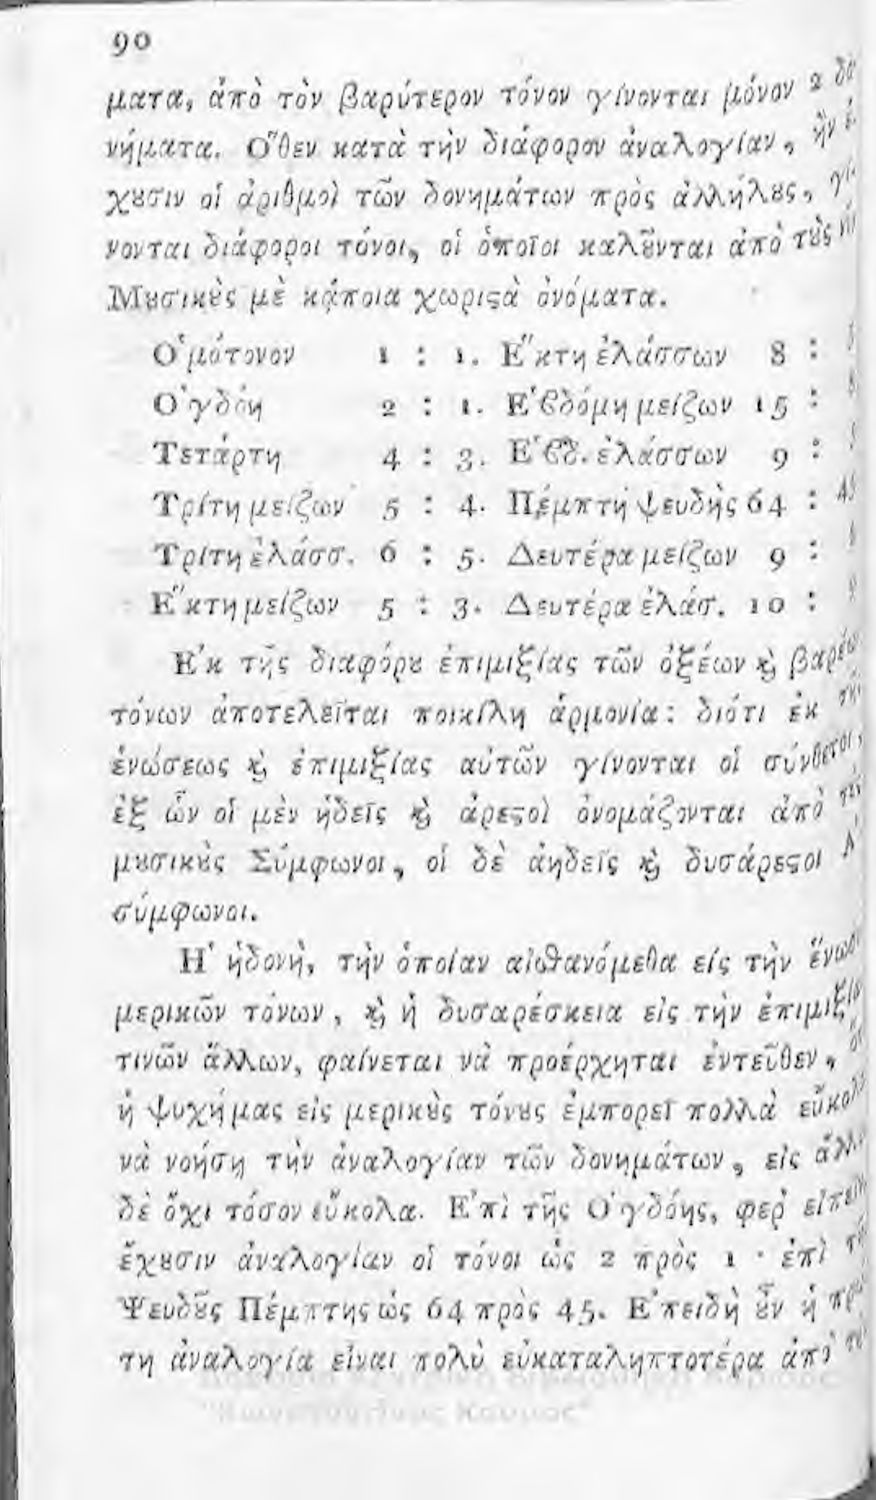 90
ματα, ἀπὸ τὸν βαρύτερον τόνον γίνονται μόνον 2 δο
νήματα. Ὅθεν κατὰ τὴν διάφορον ἀναλογίαν, ἣν ἔ
χȣσιν οἱ ἀριθμοὶ τῶν δονημάτων πρὸς ἀλλήλȣς, γί
νονται διάφοροι τόνοι, οἱ ὁποῖοι καλȣ͂νται ἀπὸ τȣ̀ς
Μȣσικȣ̀ς μὲ κᾴποια χωριϛὰ ὀνόματα.
Ὁμότονον 1 : 1. Ἕκτη ἐλάσσων 8 :
Ὀγδόη 2 : 1. Ἑβδόμη μείζων 15 :
Τετάρτη 4 : 3. Ἑβδ. ἐλάσσων 9 :
Τρίτη μείζων 5 : 4. Πέμπτη ψευδὴς 64 : 45
Τρίτη ἐλάσσ. 6 : 5. Δευτέρα μείζων 9 :
Ἕκτη μείζων 5 : 3. Δευτέρα ἐλάσ. 10 :
Ἐκ τῆς διαφόρȣ ἐπιμιξίας τῶν ὀξέων ϗ βαρέω
τόνων ἀποτελεῖται ποικίλη ἁρμονία: διότι ἐκ
ἑνώσεως ϗ ἐπιμιξίας αὐτῶν γίνονται οἱ σύνθετοι,
ἐξ ὧν οἱ μὲν ἡδεῖς ϗ ἀρεϛοὶ ὀνομάζονται ἀπὸ
μȣσικȣ̀ς Σύμφωνοι, οἱ δὲ ἀηδεῖς ϗ δυσάρεϛοι Ἀ
σύμφωνοι.
Ἡ ἡδονὴ, τὴν ὁποίαν αἰσθανόμεθα εἰς τὴν ἕνωσ
μερικῶν τόνων, ϗ ἡ δυσαρέσκεια εἰς τὴν ἐπιμιξία
τινῶν ἄλλων, φαίνεται νὰ προέρχηται ἐντεῦθεν,
ἡ ψυχή μας εἰς μερικȣ̀ς τόνȣς ἐμπορεῖ πολλὰ εὔκολα
νὰ νοήσῃ τὴν ἀναλογίαν τῶν δονημάτων, εἰς ἄλλ
δὲ ὄχι τόσον εὔκολα. Ἐπὶ τῆς Ὀγδόης, φερ᾽ εἰπεῖν
ἔχȣσιν ἀναλογίαν οἱ τόνοι ὡς 2 πρὸς 1 · ἐπὶ
Ψευδȣ͂ς Πέμπτης ὡς 64 πρὸς 45. Ἐπειδὴ ȣ̓͂ν ἡ πρώ
τη ἀναλογία εἶναι πολὺ εὐκαταληπτοτέρα ἀπὸ